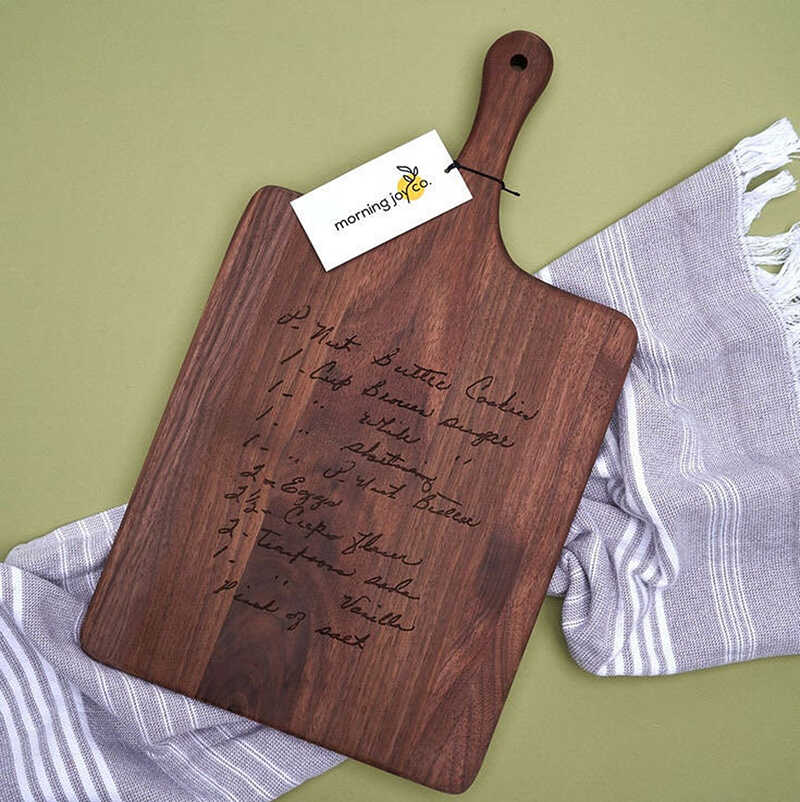 morning joy co.
P-Nut Butter Cookies
1 - Cup Brown sugar
1 - " White "
1 - " shortning
1 - " P-Nut Butter
2 - Eggs
2½ - Cups flour
2 - Teaspoons soda
1 - " Vanilla
Pinch of salt